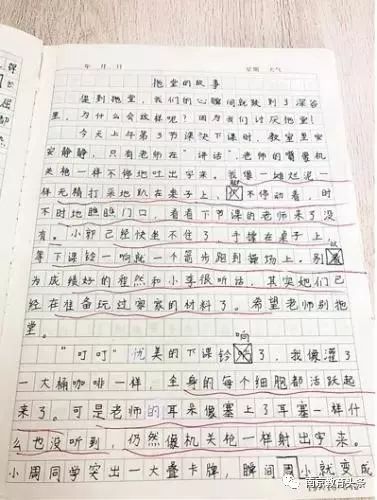 年 月 日 星期 天气
拖堂的故事
提到拖堂，我们的心瞬间就跌到了深谷
里，为什么会这样呢？因为我们讨厌拖堂！
今天上午第3节课快下课时，教室里安
安静静，只有老师在“讲话”，老师的嘴像机
关枪一样不停地吐出字来。我像一堆烂泥一
样无精打采地趴在桌子上，不停动着，时
不时地瞧瞧门口，看看下节课的老师来了没
有。小郭已经快坐不住了，手撑在桌子上，
等下课铃一响就一个箭步跑到操场上。别
为成绩好的崔然和小李很听话，其实她们已
经在准备玩过家家的材料了。希望老师别拖
堂。
响
“叮叮”优美的下课铃了，我像灌了
一大桶咖啡一样，全身的每个细胞都活跃起
来了。可是老师的耳朵像塞上了耳塞一样什
么也没听到，仍然像机关枪一样射出字来。
小周同学突出一大叠卡牌，瞬间周小就变成
南京教育头条